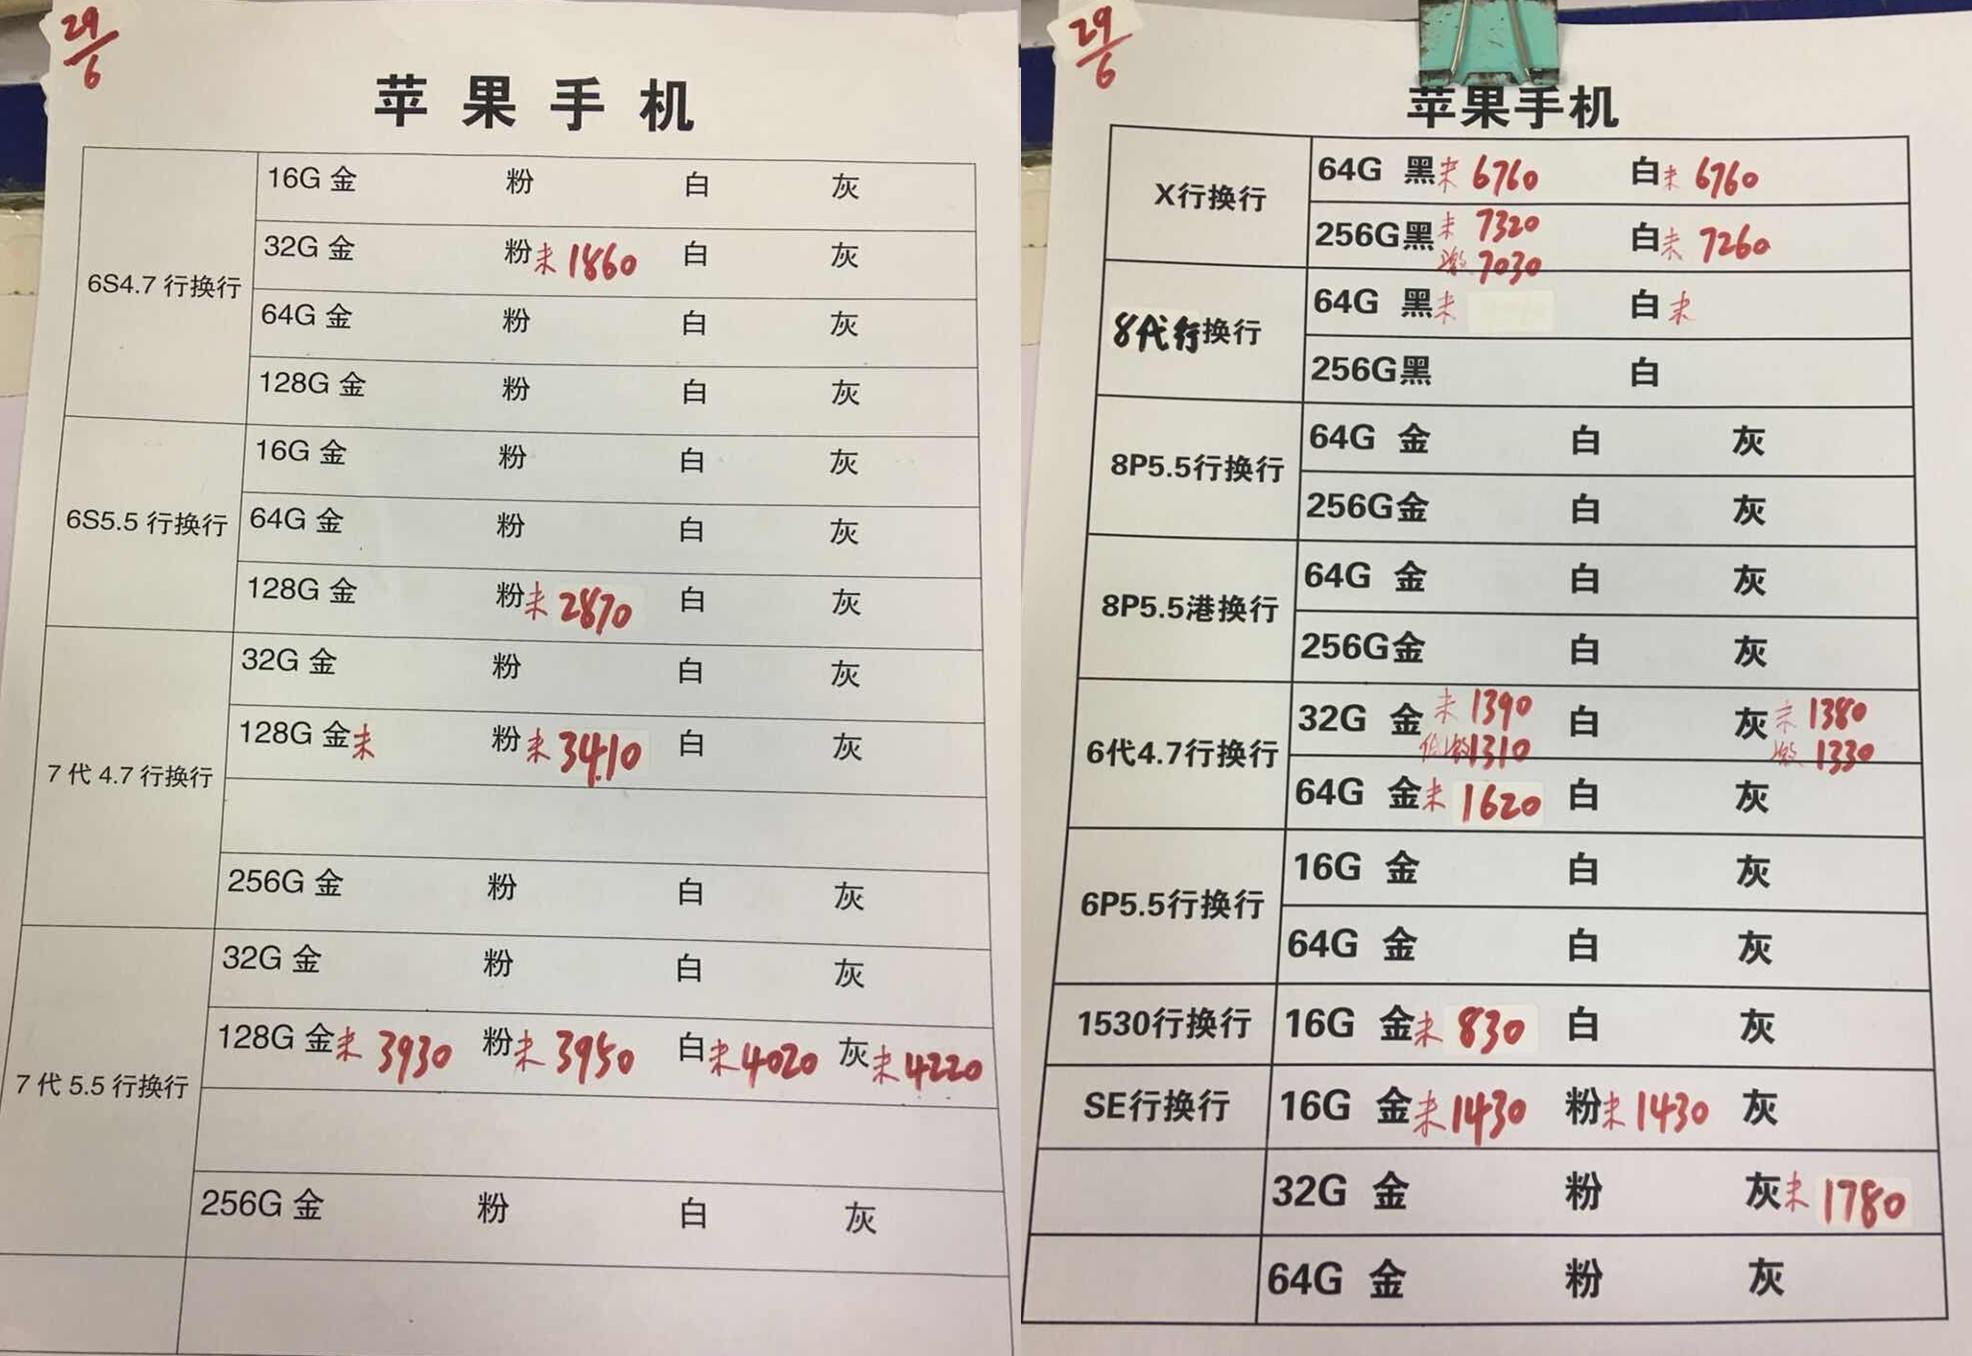 29/6
苹果手机
6S4.7行换行
16G金 粉 白 灰
32G金 粉未1860 白 灰
64G金 粉 白 灰
128G金 粉 白 灰
6S5.5行换行
16G金 粉 白 灰
64G金 粉 白 灰
128G金 粉未2870 白 灰
7代4.7行换行
32G金 粉 白 灰
128G金未 粉未3410 白 灰
256G金 粉 白 灰
7代5.5行换行
32G金 粉 白 灰
128G金未3930 粉未3950 白未4020 灰未4220
256G金 粉 白 灰
29/6
苹果手机
X行换行
64G 黑未6760 白未6760
256G黑未7320 白未7260
激7030
8代行换行
64G 黑未 白未
256G黑 白
8P5.5行换行
64G 金 白 灰
256G金 白 灰
8P5.5港换行
64G 金 白 灰
256G金 白 灰
6代4.7行换行
32G 金未1390 白 灰未1380
激1310 激1330
64G 金未1620 白 灰
6P5.5行换行
16G 金 白 灰
64G 金 白 灰
1530行换行
16G 金未830 白 灰
SE行换行
16G 金未1430 粉未1430 灰
32G 金 粉 灰未1780
64G 金 粉 灰